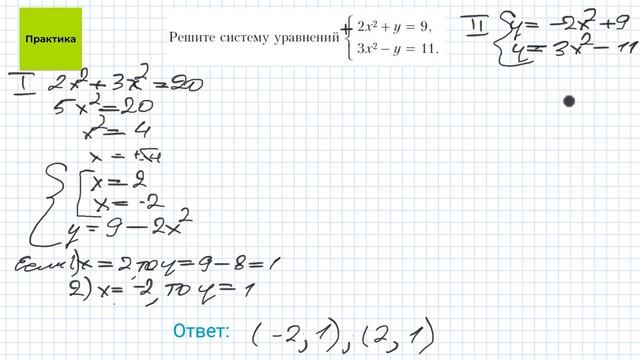 Практика
Решите систему уравнений
+ { 2x² + y = 9,
3x² − y = 11.
II { y = −2x² + 9
y = 3x² − 11
I 2x² + 3x² = 20
5x² = 20
x² = 4
x = ±√4
{ [ x = 2
x = −2
y = 9 − 2x²
Если 1) x = 2, то y = 9 − 8 = 1
2) x = −2, то y = 1
Ответ: (−2, 1), (2, 1)